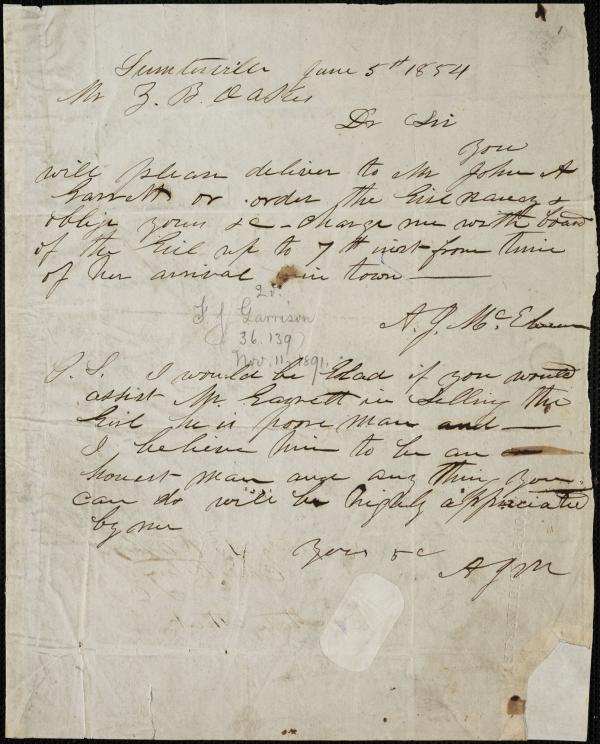 Sumterville June 5th 1854
Mr Z. B. Oakes
Dr Sir
you
will please deliver to Mr John A
Garrett or order the Girl nancy &
oblige yours &c - Charge me with board
of the Girl up to 7th inst from time
of her arrival in town —
A. J. McElveen
25.
F. J. Garrison
36.139
Nov. 11, 1891.
P. S. I would be Glad if you would
assist Mr. Garrett in Selling the
Girl he is poore man and —
I believe him to be an
honest man any thin you
can do will be highly appreciated
by me
Yours &c
AJM